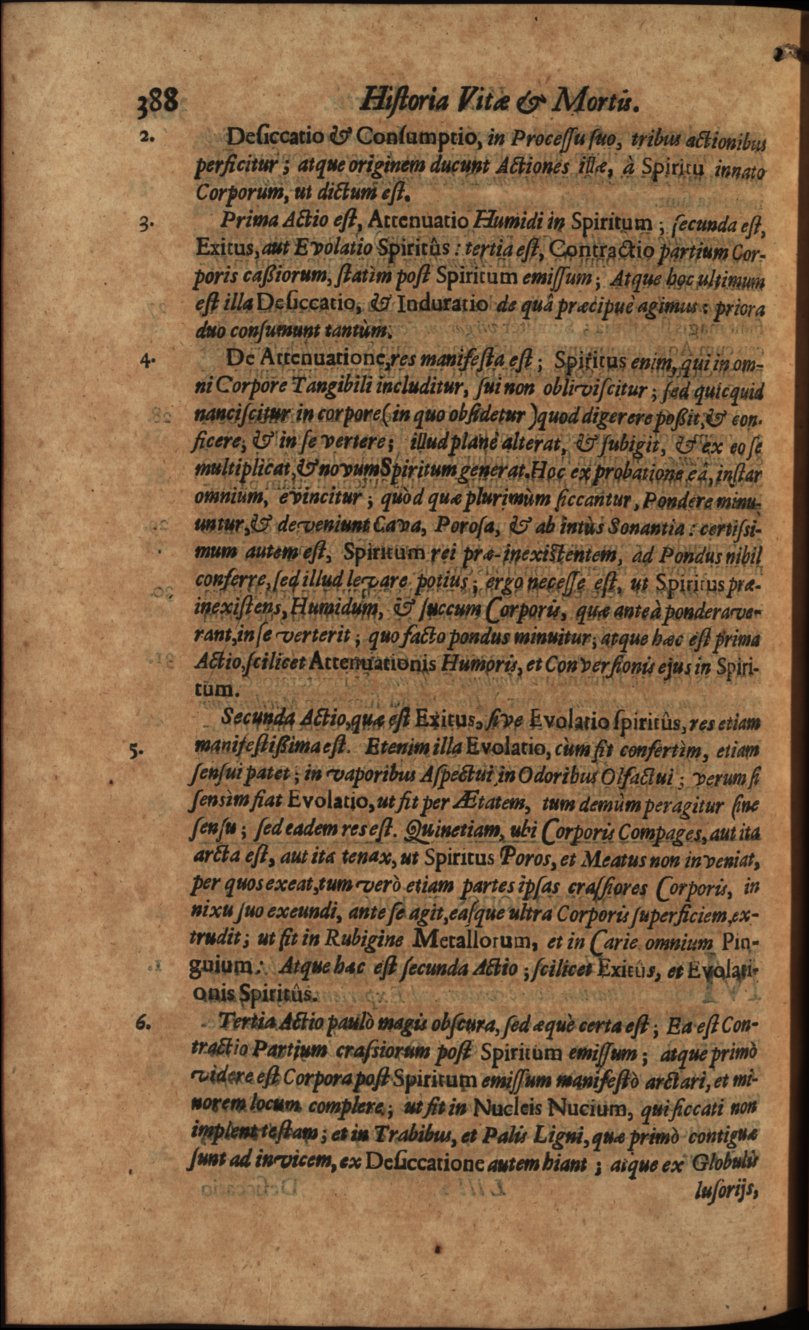 388 Hiſtoria Vitæ & Mortis.
2. Deſiccatio & Conſumptio, in Proceſſu ſuo, tribus actionibus
perficitur; atque originem ducunt Actiones illæ, à Spiritu innato
Corporum, ut dictum eſt.
3. Prima Actio eſt, Attenuatio Humidi in Spiritum; ſecunda eſt,
Exitus, aut Evolatio Spiritûs: tertia eſt, Contractio partium Cor-
poris caßiorum, ſtatìm poſt Spiritum emiſſum; Atque hoc ultimum
eſt illa Deſiccatio, & Induratio de quâ præcipuè agimus: priora
duo conſumunt tantùm.
4. De Attenuatione, res manifeſta eſt; Spiritus enim, qui in om-
ni Corpore Tangibili includitur, ſui non obliviſcitur; ſed quicquid
nanciſcitur in corpore (in quo obſidetur) quod digerere poßit, & con-
ficere, & in ſe vertere; illud planè alterat, & ſubigit, & ex eo ſe
multiplicat, & novum Spiritum generat. Hoc ex probatione eâ, inſtar
omnium, evincitur; quòd quæ plurimùm ſiccantur, Pondere minu-
untur, & deveniunt Cava, Poroſa, & ab intùs Sonantia: certiſſi-
mum autem eſt, Spiritum rei præ-inexiſtentem, ad Pondus nihil
conferre, ſed illud levare potius; ergo neceſſe eſt, ut Spiritus præ-
inexiſtens, Humidum, & ſuccum Corporis, quæ anteà ponderave-
rant, in ſe verterit; quo facto pondus minuitur; atque hæc eſt prima
Actio, ſcilicet Attenuationis Humoris, et Converſionis ejus in Spiri-
tum.
Secunda Actio, quæ eſt Exitus, ſive Evolatio ſpiritûs, res etiam
5. manifeſtißima eſt. Etenim illa Evolatio, cùm fit confertìm, etiam
ſenſui patet; in vaporibus Aſpectui, in Odoribus Olfactui; verum ſi
ſensìm fiat Evolatio, ut fit per Ætatem, tum demùm peragitur ſine
ſenſu; ſed eadem res eſt. Quinetiam, ubi Corporis Compages, aut ita
arcta eſt, aut ita tenax, ut Spiritus Poros, et Meatus non inveniat,
per quos exeat, tum verò etiam partes ipſas craſſiores Corporis, in
nixu ſuo exeundi, ante ſe agit, eaſque ultra Corporis ſuperficiem, ex-
trudit; ut fit in Rubigine Metallorum, et in Carie omnium Pin-
guium: Atque hæc eſt ſecunda Actio; ſcilicet Exitûs, et Evolati-
onis Spiritûs.
6. Tertia Actio paulò magis obſcura, ſed æquè certa eſt; Ea eſt Con-
tractio Partium craſsiorum poſt Spiritum emiſſum; atque primò
videre eſt Corpora poſt Spiritum emiſſum manifeſtò arctari, et mi-
norem locum complere; ut fit in Nucleis Nucium, qui ſiccati non
implent teſtam; et in Trabibus, et Palis Ligni, quæ primò contiguæ
ſunt ad invicem, ex Deſiccatione autem hiant; atque ex Globulis
luſorijs,